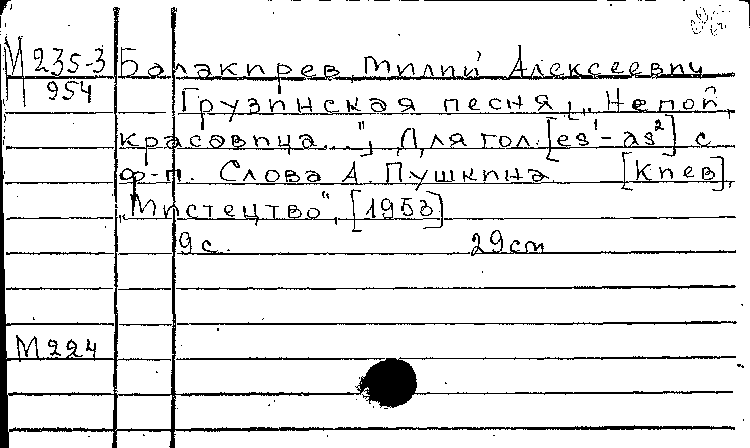 М 235-3 Балакирев, Милий Алексеевич
954
Грузинская песня [„Не пой,
красавица..."] Для гол. [es¹-as²] с
ф-п. Слова А. Пушкина [Киев],
„Мистецтво", [1953]
9 с. 29 см
М 224